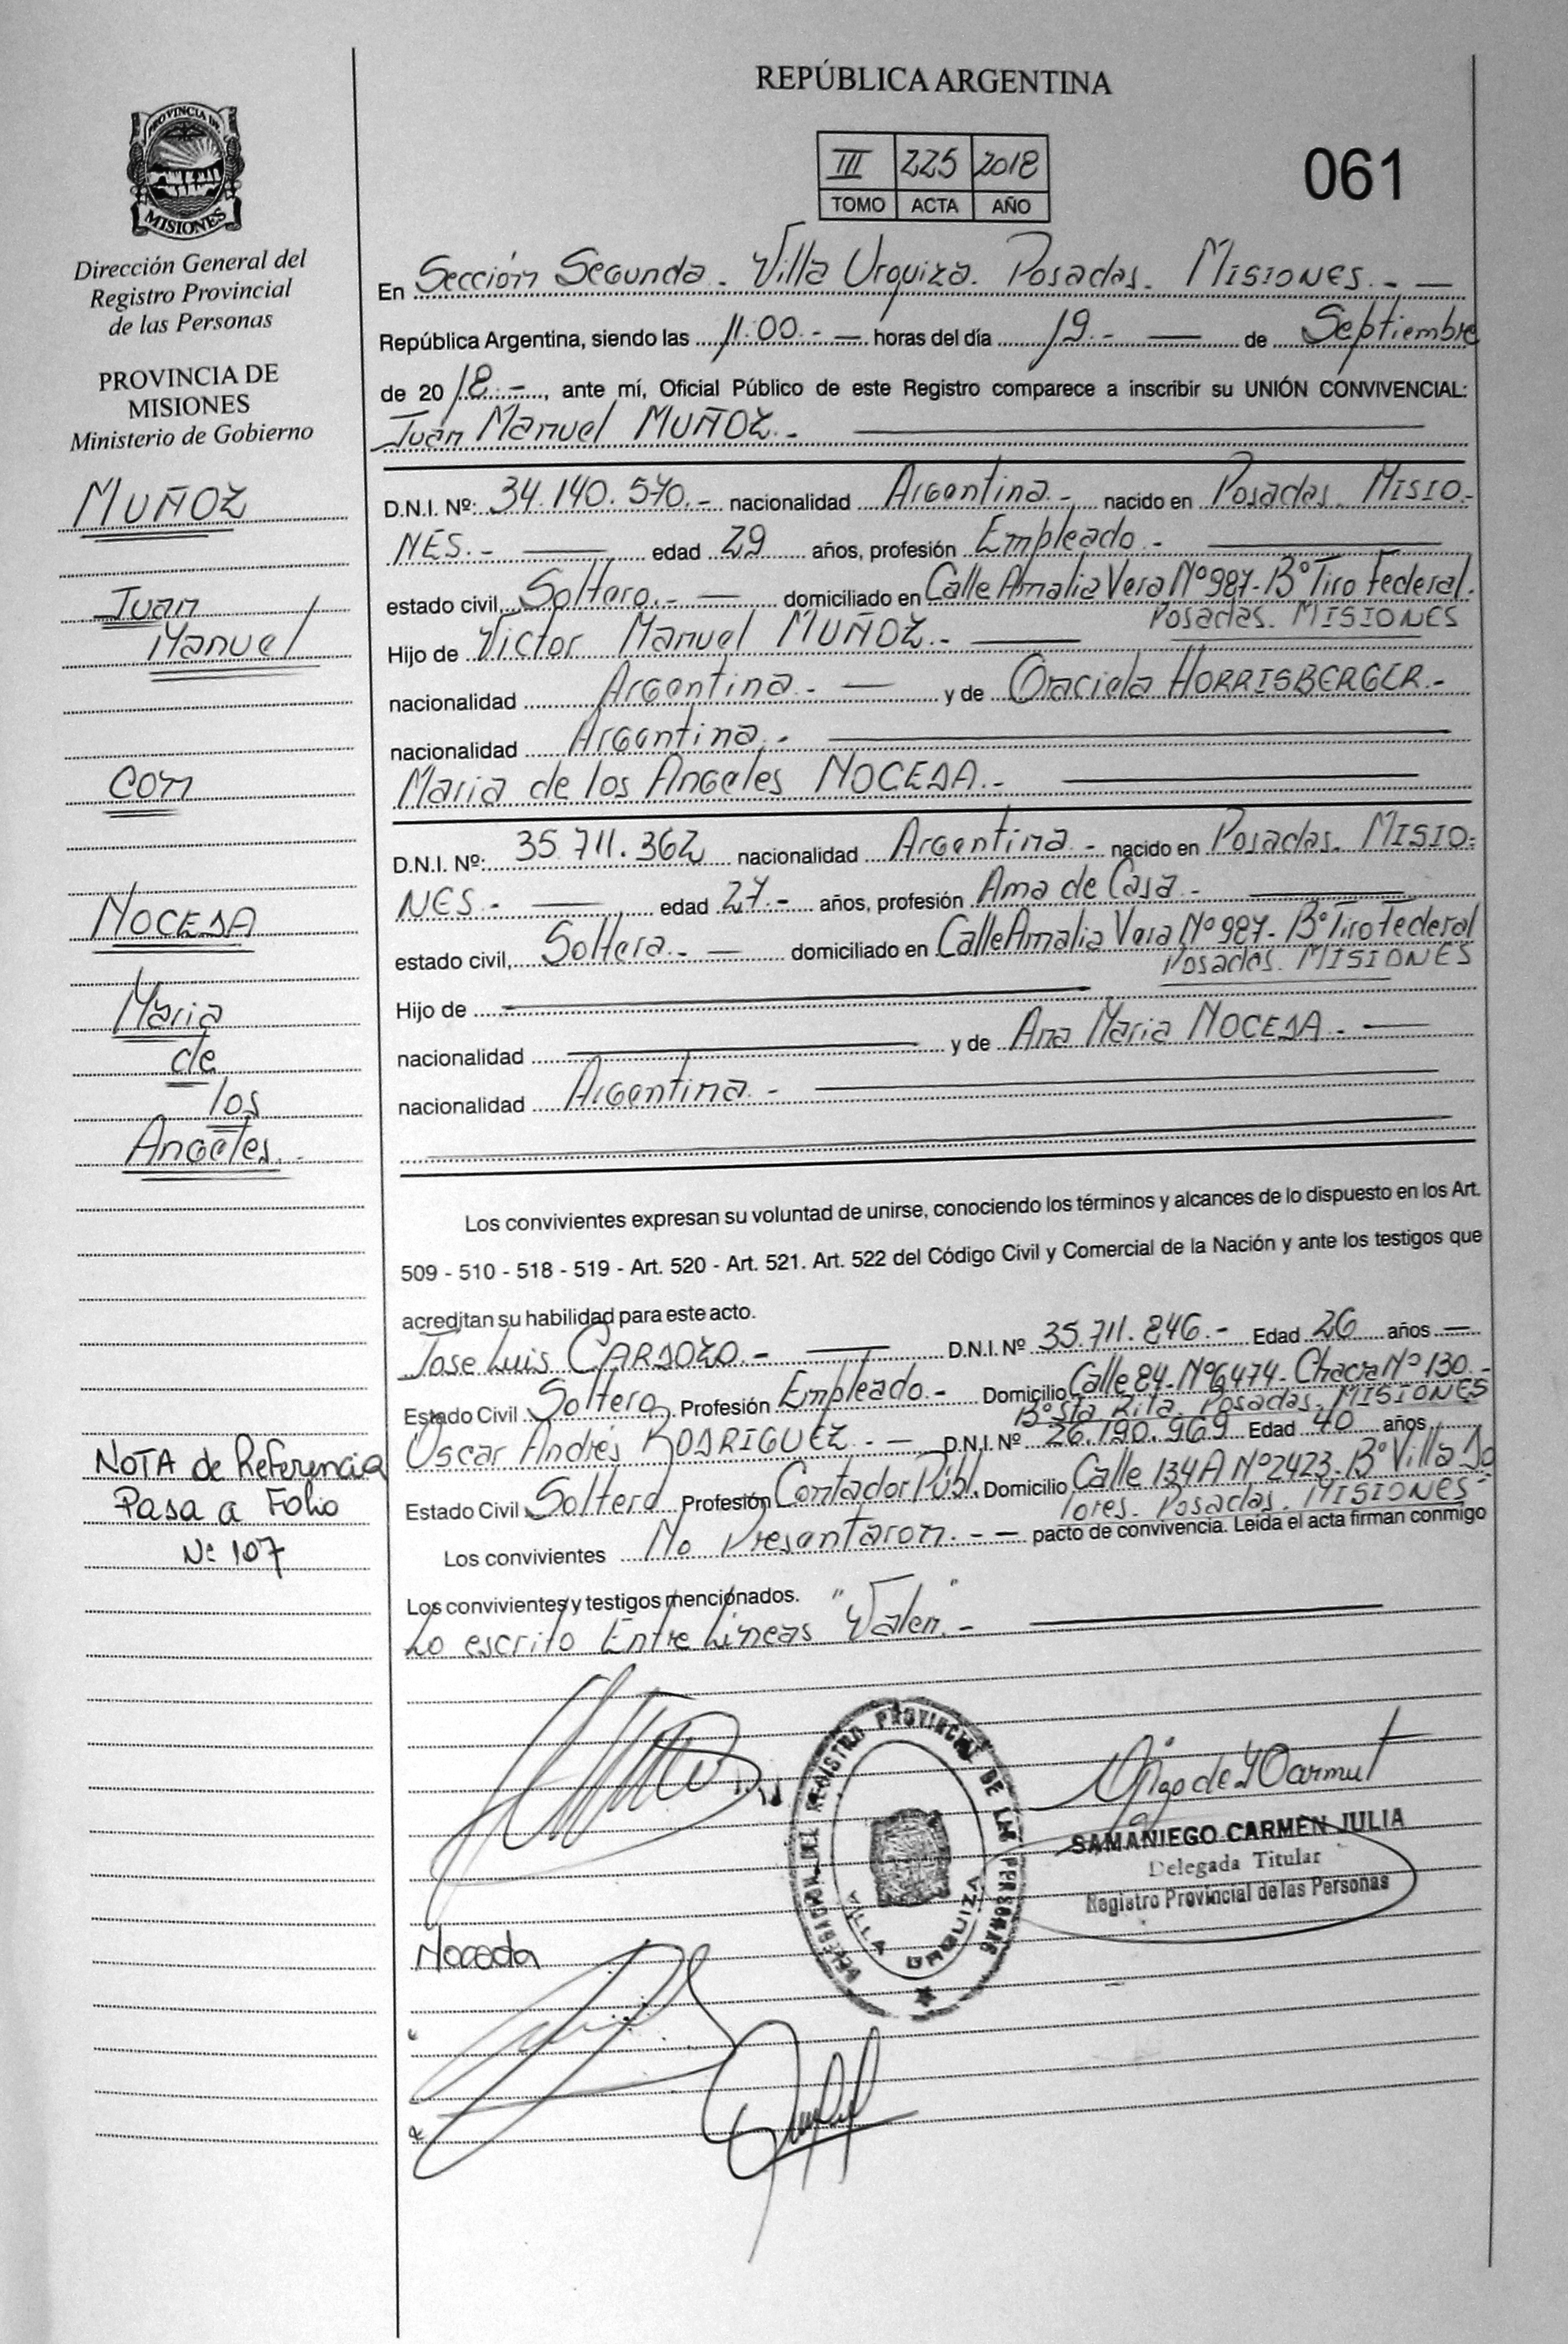 REPÚBLICA ARGENTINA
III 225 2018
TOMO ACTA AÑO
061
PROVINCIA DE
MISIONES
Dirección General del
Registro Provincial
de las Personas
PROVINCIA DE
MISIONES
Ministerio de Gobierno
MUÑOZ
Juan
Manuel
con
NOCEDA
Maria
de
los
Angeles.-
NOTA de Referencia
Pasa a Folio
Nº 107
En Sección Segunda - Villa Urquiza. Posadas. MISIONES.- —
República Argentina, siendo las 11.00.- — horas del día 19.- — de Septiembre
de 2018.-, ante mí, Oficial Público de este Registro comparece a inscribir su UNIÓN CONVIVENCIAL:
Juan Manuel MUÑOZ.-
D.N.I. Nº: 34.140.570.- nacionalidad Argentina.- nacido en Posadas. MISIO-
NES.- — edad 29 años, profesión Empleado.-
estado civil, Soltero.- — domiciliado en Calle Amalia Vera Nº 987-Bº Tiro Federal.
Posadas. MISIONES
Hijo de Victor Manuel MUÑOZ.-
nacionalidad Argentina.- — y de Graciela HORRISBERGER.-
nacionalidad Argentina.-
Maria de los Angeles NOCEDA.-
D.N.I. Nº: 35.711.362 nacionalidad Argentina.- nacido en Posadas. MISIO-
NES.- — edad 27.- años, profesión Ama de Casa.-
estado civil, Soltera.- — domiciliado en Calle Amalia Vera Nº 987- Bº Tiro Federal
Posadas. MISIONES
Hijo de
nacionalidad y de Ana Maria NOCEDA.- —
nacionalidad Argentina.-
Los convivientes expresan su voluntad de unirse, conociendo los términos y alcances de lo dispuesto en los Art.
509 - 510 - 518 - 519 - Art. 520 - Art. 521. Art. 522 del Código Civil y Comercial de la Nación y ante los testigos que
acreditan su habilidad para este acto.
Jose Luis CARDOZO.- — D.N.I. Nº 35.711.846.- Edad 26 años —
Estado Civil Soltero Profesión Empleado.- Domicilio Calle 84-Nº6474-Chacra Nº 130.-
Bº Sta Rita. Posadas. MISIONES
Oscar Andrés RODRIGUEZ.- — D.N.I. Nº 26.190.969 Edad 40 años
Estado Civil Soltero Profesión Contador Públ. Domicilio Calle 134A Nº2423-Bº Villa Do
lores. Posadas. MISIONES-
Los convivientes No Presentaron.- — pacto de convivencia. Leída el acta firman conmigo
Los convivientes y testigos mencionados.
Lo escrito Entre Lineas "Valen".-
DELEGACION DEL REGISTRO PROVINCIAL DE LAS PERSONAS
VILLA URQUIZA
SAMANIEGO CARMEN JULIA
Delegada Titular
Registro Provincial de las Personas
Noceda